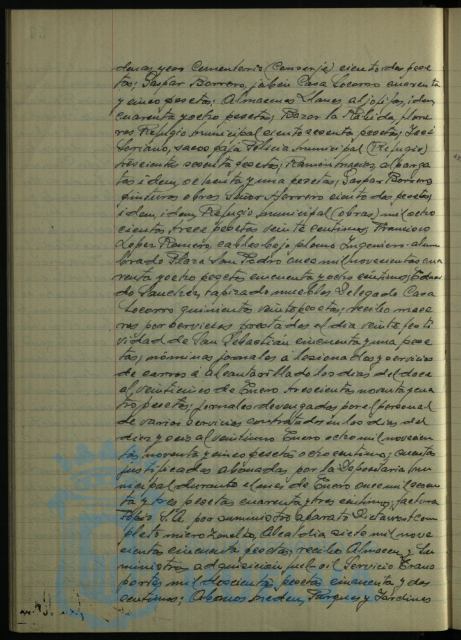 demas yeso Cementerio (Conserje) ciento dos pese
tas; Gaspar Borrero, jabón Casa Socorro cuarenta
y cinco pesetas; Almacenes Llanes, idem
cuarenta y ocho pesetas; Bazar la Rabida,
Refugio municipal ciento sesenta pesetas; José
Soriano, sacos paja Policia municipal (Refugio)
trescientas sesenta pesetas; Ramón alparga
tas idem, ochenta y una pesetas; Gaspar Borrero
pinturas obras Señor Herrero ciento dos pesetas,
idem, idem, Refugio municipal (obras) mil ocho
cientas trece pesetas veinte centimos; Francisco
Lopez Romero, cables bajo plomo Ingeniero alum
brado Plaza San Pedro cinco mil novecientas cua
renta y ocho pesetas cincuenta y ocho centimos; Eduar
do Sanchez, tapizado muebles Delegado Casa
Socorro quinientas veinte pesetas; recibo mace
ros por servicios prestados el dia veinte festi
vidad de San Sebastián cincuenta y una pese
tas; nóminas jornales a lesionados y servicio
de carros á alcantarillado los dias del doce
al veinticinco de Enero trescientas noventa y cua
tro pesetas; jornales devengados por el personal
de varios servicios contratados en los dias del
diez y ocho al veintiuno Enero ocho mil novecien
tas noventa y cinco pesetas ocho centimos; cuentas
justificadas abonadas por la Depositaria mu
nicipal durante el mes de Enero once mil sesen
ta y tres pesetas cuarenta y tres centimos; factura
S.A. por suministro aparato Dictavox com
pleto microfonello, Alcaldia siete mil nove
cientas cincuenta pesetas; recibo Almacen y Su
ministros adquisición fuel-oil Servicio Trans
portes mil doscientas pesetas cincuenta y dos
centimos; Abonos Parques y Jardines